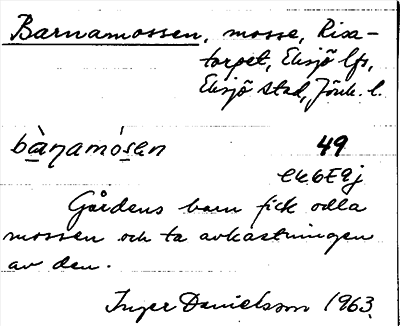 Barnamossen, mosse, Risa-
torpet, Eksjö lfs,
Eksjö stad, Jönk. l.
bàṇamósen 49
ek 6E9j
Gårdens barn fick odla
mossen och ta avkastningen
av den.
Inger Danielsson 1963.